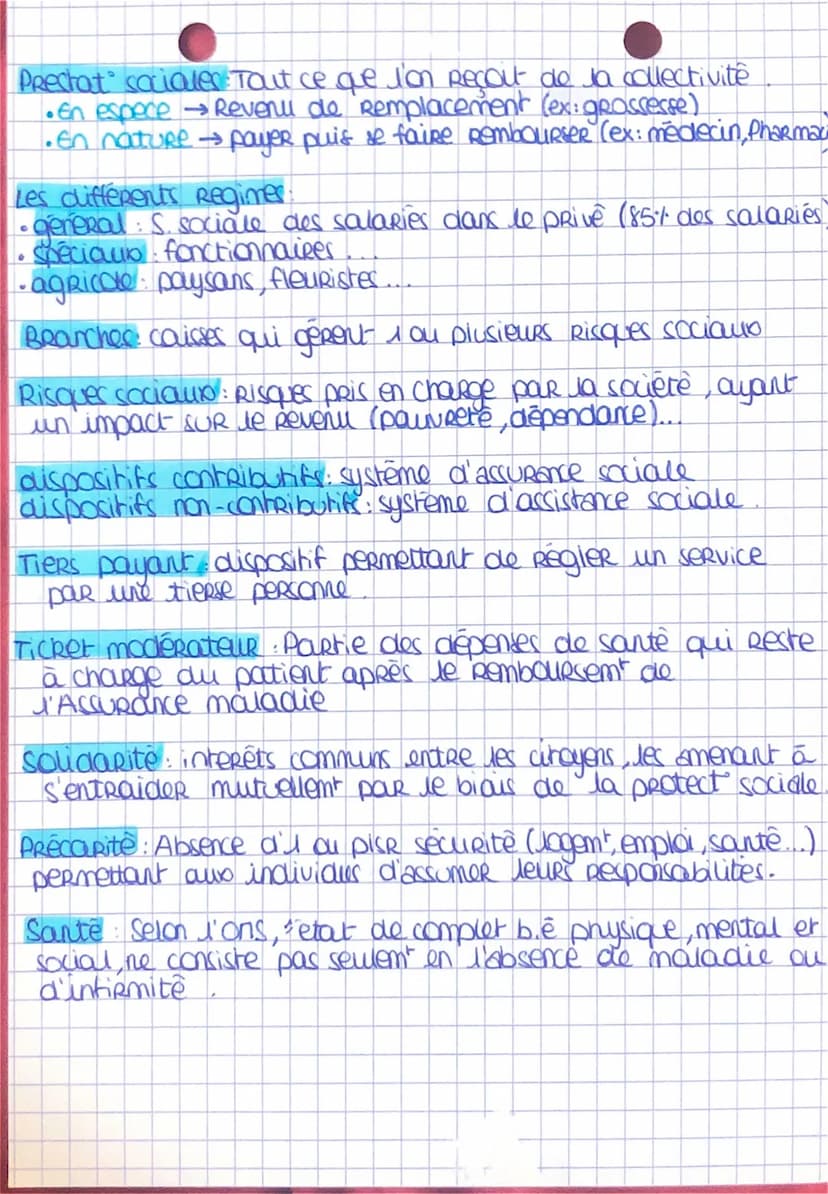 Prestat° sociales: Tout ce que l'on reçoit de la collectivité.
• En espece → Revenu de remplacement (ex: grossesse)
• En nature → payer puis se faire rembourser (ex: médecin, Pharmaci
Les différents Regimes:
• général : S. sociale des salariés dans le privé (85% des salariés)
• spéciaux : fonctionnaires ...
• agricole : paysans, fleuristes ...
Branches: caisses qui gèrent 1 ou plusieurs risques sociaux
Risques sociaux : Risques pris en charge par la société, ayant
un impact sur le revenu (pauvreté, dépendance)...
dispositifs contributifs : système d'assurance sociale
dispositifs non-contributifs : système d'assistance sociale.
Tiers payant : dispositif permettant de régler un service
par une tierse personne.
Ticket modérateur : Partie des dépenses de santé qui reste
à charge du patient après le remboursemt de
l'Assurance maladie
Solidarité : interêts communs entre les citoyens, les amenant à
s'entraider mutuellemt par le biais de la protect° sociale.
Précarité : Absence d'1 ou plsr sécurité (logemt, emploi, santé...)
permettant aux individus d'assumer leurs responsabilités.
Santé : Selon l'OMS, état de complet b.ê physique, mental et
social, ne consiste pas seulemt en l'absence de maladie ou
d'infirmité.